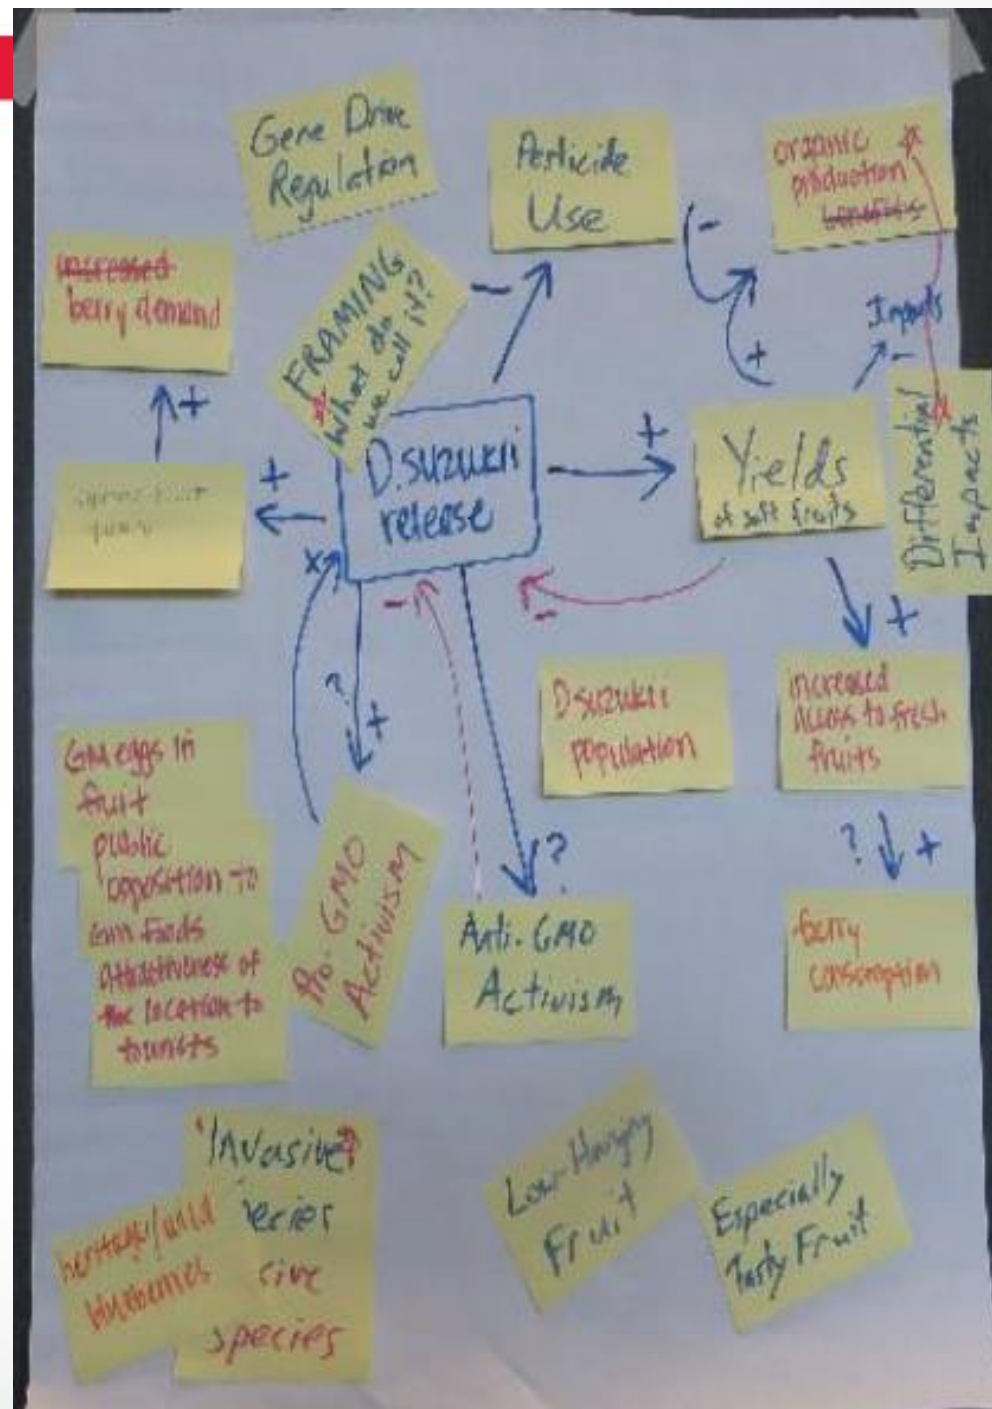 Gene Drive
Regulation
Pesticide
Use
organic
production
benefits
increased
berry demand
FRAMING
What do
we call it?
-
-
+
Inputs
-
Differential
Impacts
+
+
D.suzukii
release
+
Yields
of soft fruits
-
-
?
+
+
D suzukii
population
increased
access to fresh
fruits
? +
GM eggs in
fruit
public
opposition to
GM foods
attractiveness of
the location to
tourists
Pro-GMO
Activism
?
Anti-GMO
Activism
berry
consumption
"Invasive"
species
heritage/wild
blueberries
Low-Hanging
Fruit
Especially
Tasty Fruit